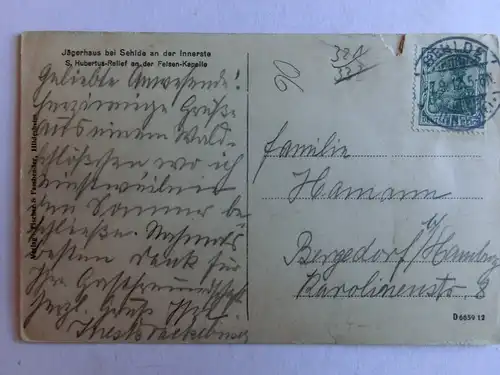 Jägerhaus bei Sehlde an der Innerste
S. Hubertus-Relief an der Felsen-Kapelle
Geliebte Anwesende!
Herzinnige Grüße
aus einem Wald-
schlößchen wo ich
einstweilen
den Sommer be-
schließe. Nochmals
besten Dank für
Ihre Gastfreundschaft
Herzl. Gruß Ihr
321
322
Familie
Hamann
Bergedorf b/ Hamburg
Karolinenstr 8
D 6659 12